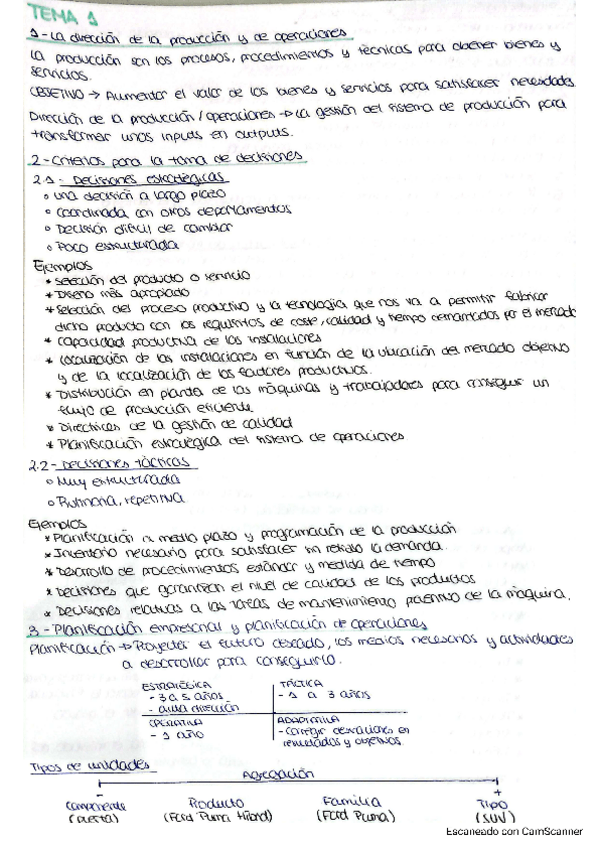 TEMA 1
1-La dirección de la producción y de operaciones
La producción son los procesos, procedimientos y técnicas para obtener bienes y
servicios.
OBJETIVO → Aumentar el valor de los bienes y servicios para satisfacer necesidades
Dirección de la producción/operaciones → La gestión del sistema de producción para
transformar unos inputs en outputs.
2-Criterios para la toma de decisiones
2.1- Decisiones estratégicas
° Una decisión a largo plazo
° Coordinada con otros departamentos
° Decisión difícil de cambiar
° Poco estructurada
Ejemplos
* Selección del producto o servicio
* Diseño más apropiado
* Selección del proceso productivo y la tecnología que nos va a permitir fabricar
dicho producto con los requisitos de coste, calidad y tiempo demandados por el mercado
* Capacidad productiva de las instalaciones
* Localización de las instalaciones en función de la ubicación del mercado objetivo
y de la localización de los factores productivos.
* Distribución en planta de las máquinas y trabajadores para conseguir un
flujo de producción eficiente
* Directrices de la gestión de calidad
* Planificación estratégica del sistema de operaciones
2.2- Decisiones tácticas
° Muy estructurada
° Rutinaria, repetitiva
Ejemplos
* Planificación a medio plazo y programación de la producción
* Inventario necesario para satisfacer sin retraso la demanda.
* Desarrollo de procedimientos estándar y medida de tiempo
* Decisiones que garantizan el nivel de calidad de los productos
* Decisiones relativas a las tareas de mantenimiento preventivo de la máquina.
3-Planificación empresarial y planificación de operaciones
Planificación → Proyectar el futuro deseado, los medios necesarios y actividades
a desarrollar para conseguirlo.
ESTRATÉGICA
- 3 a 5 años
- alta dirección
TÁCTICA
- 1 a 3 años
OPERATIVA
- 1 año
ADAPTATIVA
- Corregir desviaciones en
resultados y objetivos
Tipos de unidades
Agregación
- +
Componente Producto Familia Tipo
(puerta) (Ford Puma Híbrid) (Ford Puma) (SUV)
Escaneado con CamScanner